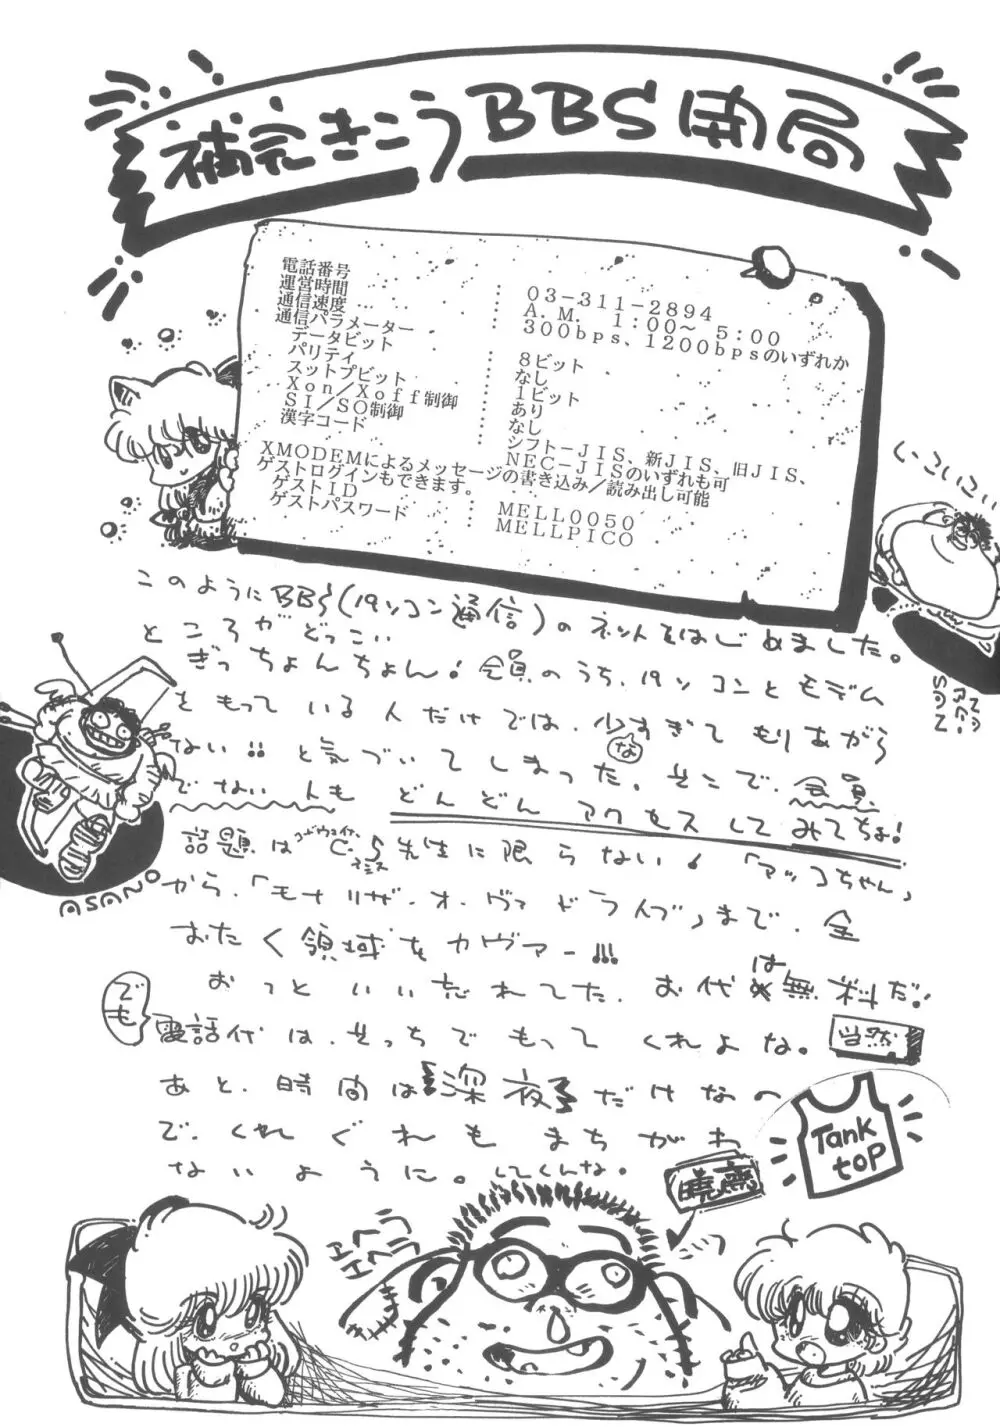 補完きこうBBS開局
電話番号 : 03-311-2894
運営時間 : A.M. 1:00~5:00
通信速度 : 300bps、1200bpsのいずれか
通信パラメーター
データビット : 8ビット
パリティ : なし
スットプビット : 1ビット
Xon/Xoff制御 : あり
SI/SO制御 : なし
漢字コード : シフト-JIS、新JIS、旧JIS、
NEC-JISのいずれも可
XMODEMによるメッセージの書き込み/読み出し可能
ゲストログインもできます。
ゲストID : MELL0050
ゲストパスワード : MELLPICO
このようにBBS(パソコン通信)のネットをはじめました。
ところがどっこい
ぎっちょんちょん!会員のうち、パソコンとモデム
をもっている人だけでは、少なすぎてもりあがら
ない!!と気づいてしまった。そこで、会員
でない人もどんどんアクセスしてみてちょ!
話題はC.S先生に限らない!「アッコちゃん」
から、「モナリザ・オーヴァドライブ」まで、全
おたく領域をカヴァー!!!
おっといい忘れてた、お代は無料だ!
でも電話代は、そっちでもってくれよな。当然
あと、時間は深夜だけなの
で、くれぐれもまちがわ
ないように。してくんな。
ASANO
Tank
top
エヘラ
エヘラ